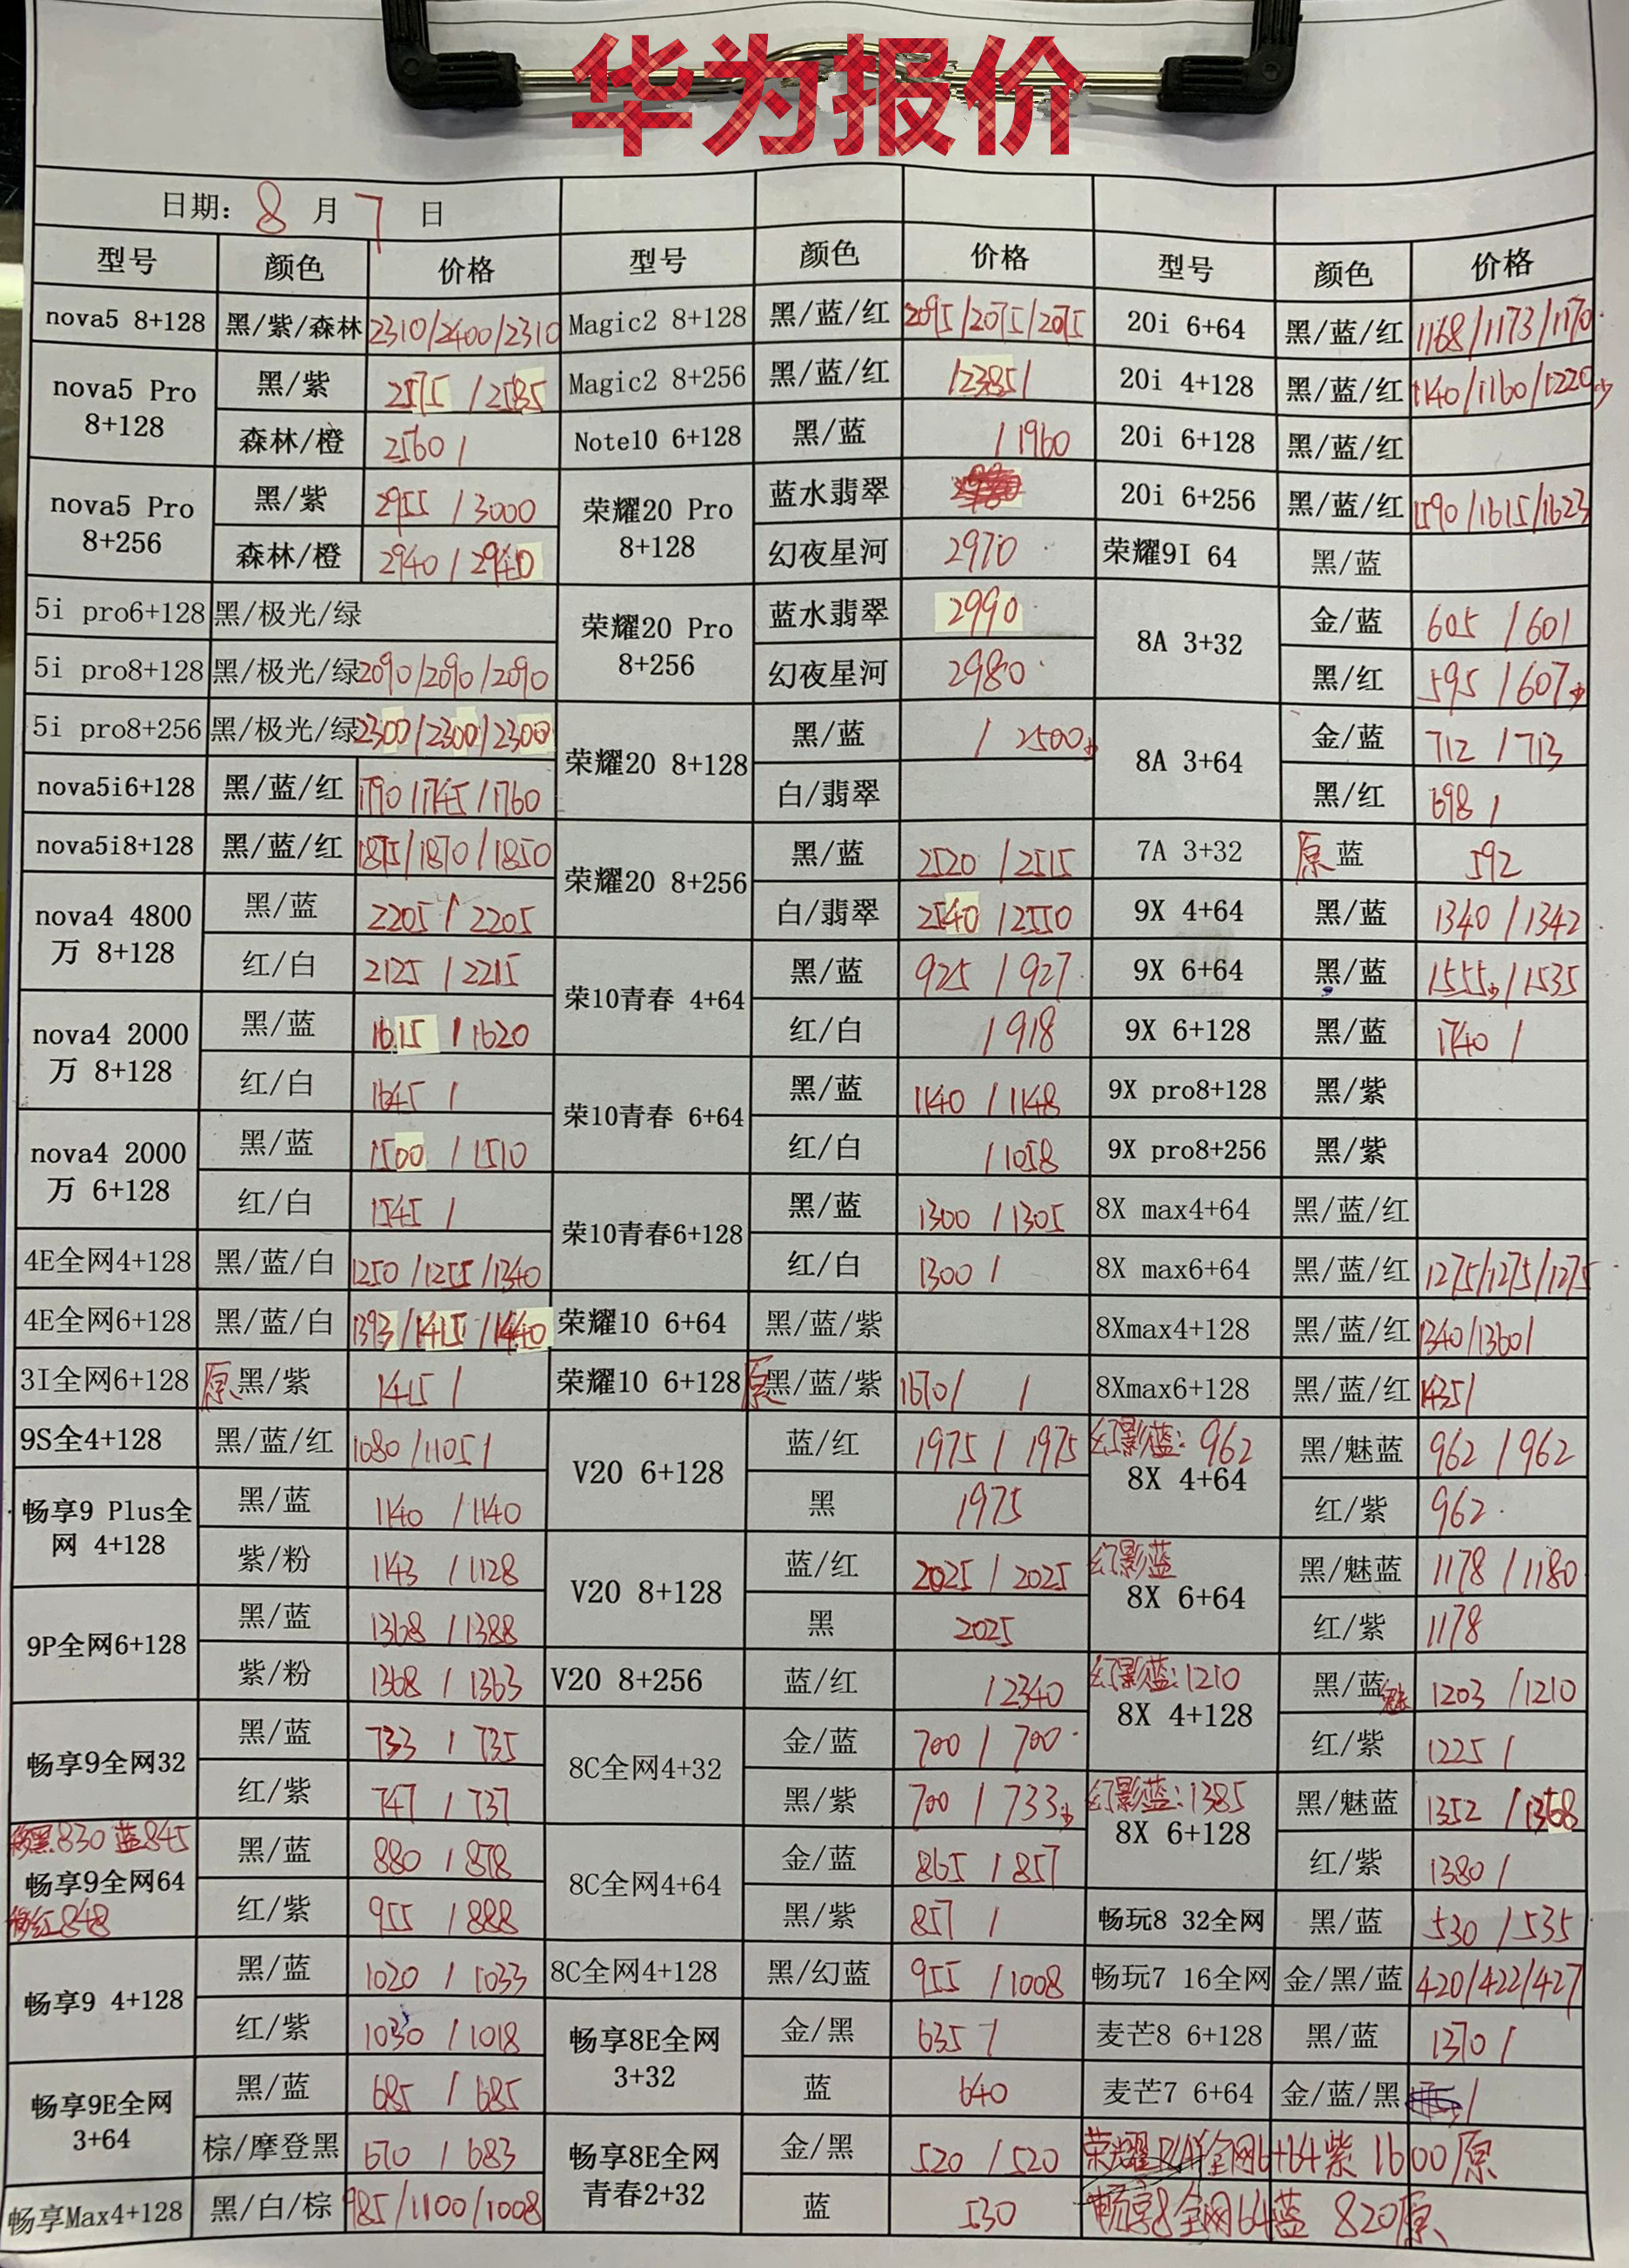 华为报价
日期: 8 月 7 日
型号 颜色 价格 型号 颜色 价格 型号 颜色 价格
nova5 8+128 黑/紫/森林 2310/2400/2310 Magic2 8+128 黑/蓝/红 2095/2075/2075 20i 6+64 黑/蓝/红 1168/1173/1170
nova5 Pro 8+128 黑/紫 2575 / 2585 Magic2 8+256 黑/蓝/红 /2385/ 20i 4+128 黑/蓝/红 1140/1160/1220少
森林/橙 2560 / Note10 6+128 黑/蓝 / 1960 20i 6+128 黑/蓝/红
nova5 Pro 8+256 黑/紫 2955 / 3000 荣耀20 Pro 8+128 蓝水翡翠 20i 6+256 黑/蓝/红 1590/1615/1623
森林/橙 2940 / 2940 幻夜星河 2970 荣耀9I 64 黑/蓝
5i pro6+128 黑/极光/绿 荣耀20 Pro 8+256 蓝水翡翠 2990 8A 3+32 金/蓝 605 / 601
5i pro8+128 黑/极光/绿 2090/2090/2090 幻夜星河 2980 黑/红 595 / 607少
5i pro8+256 黑/极光/绿 2300/2300/2300 荣耀20 8+128 黑/蓝 / 2500少 8A 3+64 金/蓝 712 / 713
nova5i6+128 黑/蓝/红 1790/1745/1760 白/翡翠 黑/红 698 /
nova5i8+128 黑/蓝/红 1875/1870/1850 荣耀20 8+256 黑/蓝 2520 / 2515 7A 3+32 原 蓝 592
nova4 4800万 8+128 黑/蓝 2205 / 2205 白/翡翠 2540 / 2550 9X 4+64 黑/蓝 1340 / 1342
红/白 2125 / 2215 荣10青春 4+64 黑/蓝 925 / 927 9X 6+64 黑/蓝 1555少/1535
nova4 2000万 8+128 黑/蓝 1615 / 1620 红/白 / 918 9X 6+128 黑/蓝 1740 /
红/白 1645 / 荣10青春 6+64 黑/蓝 1140 / 1148 9X pro8+128 黑/紫
nova4 2000万 6+128 黑/蓝 1500 / 1510 红/白 / 1058 9X pro8+256 黑/紫
红/白 1545 / 荣10青春6+128 黑/蓝 1300 / 1305 8X max4+64 黑/蓝/红
4E全网4+128 黑/蓝/白 1250/1255/1340 红/白 1300 / 8X max6+64 黑/蓝/红 1275/1275/1275
4E全网6+128 黑/蓝/白 1393/1415/1440 荣耀10 6+64 黑/蓝/紫 8Xmax4+128 黑/蓝/红 1340/1360/
3I全网6+128 原 黑/紫 1415 / 荣耀10 6+128 原 黑/蓝/紫 1670/ / 8Xmax6+128 黑/蓝/红 1435/
9S全4+128 黑/蓝/红 1080/1105/ V20 6+128 蓝/红 1975 / 1975 幻影蓝: 962 8X 4+64 黑/魅蓝 962 / 962
畅享9 Plus全网 4+128 黑/蓝 1140 / 1140 黑 1975 红/紫 962
紫/粉 1143 / 1128 V20 8+128 蓝/红 2025 / 2025 幻影蓝 8X 6+64 黑/魅蓝 1178 / 1180
9P全网6+128 黑/蓝 1368 / 1388 黑 2025 红/紫 1178
紫/粉 1368 / 1363 V20 8+256 蓝/红 / 2340 幻影蓝:1210 8X 4+128 黑/蓝 魅 1203 / 1210
畅享9全网32 黑/蓝 733 / 735 8C全网4+32 金/蓝 700 / 700 红/紫 1225 /
红/紫 747 / 737 黑/紫 700 / 733少 幻影蓝:1385 8X 6+128 黑/魅蓝 1352 / 1368
黑830 蓝845 畅享9全网64 黑/蓝 880 / 878 8C全网4+64 金/蓝 865 / 857 红/紫 1380 /
红848 红/紫 955 / 888 黑/紫 857 / 畅玩8 32全网 黑/蓝 530 / 535
畅享9 4+128 黑/蓝 1020 / 1033 8C全网4+128 黑/幻蓝 955 / 1008 畅玩7 16全网 金/黑/蓝 420/422/427
红/紫 1030 / 1018 畅享8E全网 3+32 金/黑 635 / 麦芒8 6+128 黑/蓝 1370 /
畅享9E全网 3+64 黑/蓝 685 / 685 蓝 640 麦芒7 6+64 金/蓝/黑 /
棕/摩登黑 670 / 683 畅享8E全网 青春2+32 金/黑 520 / 520 荣耀 全网6+64紫 1600原
畅享Max4+128 黑/白/棕 985/1100/1008 蓝 530 畅享8全网64蓝 820原